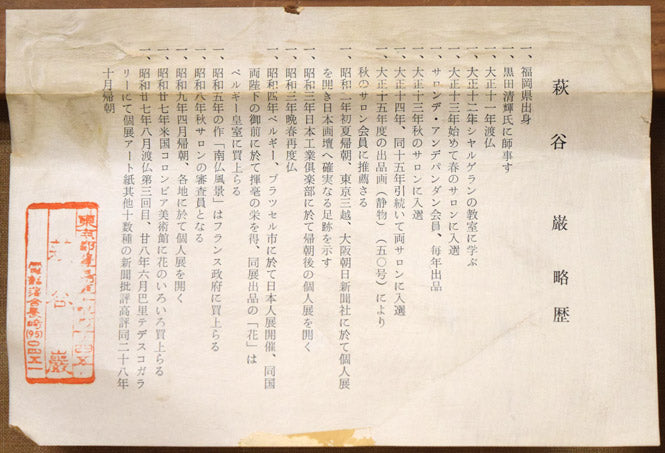 萩谷巌略歴
一、福岡県出身
一、黒田清輝氏に師事す
一、大正十一年渡仏
一、大正十二年シヤルゲランの教室に学ぶ
一、大正十三年始めて春のサロンに入選
一、サロンデ・アンデパンダン会員、毎年出品
一、大正十三年秋のサロンに入選
一、大正十四年、同十五年引続いて両サロンに入選
一、大正十五年度の出品画(静物)(五〇号)により
秋のサロン会員に推薦さる
一、昭和二年初夏帰朝、東京三越、大阪朝日新聞社に於て個人展
を開き日本画壇へ確実なる足跡を示す
一、昭和三年日本工業倶楽部に於て帰朝後の個人展を開く
一、昭和三年晩春再度仏
一、昭和四年ベルギー、ブラツセル市に於て日本人展開催、同国
両陛下の御前に於て揮毫の栄を得、同展出品の「花」は
ベルギー皇室に買上らる
一、昭和五年の作「南仏風景」はフランス政府に買上らる
一、昭和八年秋サロンの審査員となる
一、昭和九年四月帰朝、各地に於て個人展を開く
一、昭和廿七年米国コロンビア美術館に花のいろいろ買上らる
一、昭和廿七年八月渡仏第三回目、廿八年六月巴里テデスコガラ
リーにて個展アート紙其他十数種の新聞批評高評同二十八年
十月帰朝
東京都
萩谷巖
電話落合長崎(95)〇四二一